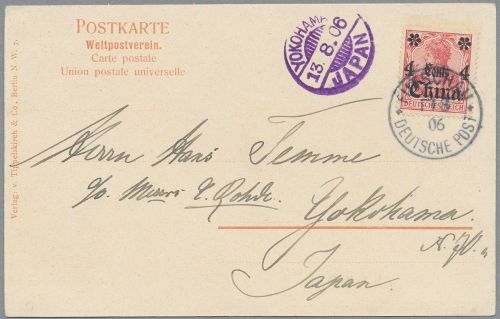 POSTKARTE
Weltpostverein.
Carte postale
Union postale universelle
YOKOHAMA
13.8.06
JAPAN
4 Cents 4
China
DEUTSCHES REICH
06
* DEUTSCHE POST *
Verlag: v. Tippelskirch & Co., Berlin N. W. 7.
Herrn Hans Temme
p/o. Messrs C. Rohde.
Yokohama.
Japan.